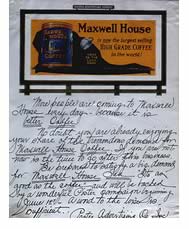 Maxwell House
is now the largest selling
HIGH GRADE COFFEE
in the world!
New people are coming to Maxwell
House every day - because it is
better coffee!
No doubt you are already enjoying
your share of the tremendous demand for
Maxwell House Coffee. If you are not
now is the time to go after this business
Be prepared to enjoy a big demand
for Maxwell House Tea. It's as
good as the coffee - and will be backed
by a wonderful Poster campaign beginning
June 10th. A word to the wise is
sufficient.
Poster Advertising Co Inc